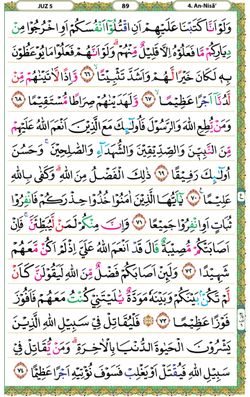 JUZ 5 89 4. An-Nisā'
وَلَوْ اَنَّا كَتَبْنَا عَلَيْهِمْ اَنِ اقْتُلُوْٓا اَنْفُسَكُمْ اَوِ اخْرُجُوْا مِنْ
دِيَارِكُمْ مَّا فَعَلُوْهُ اِلَّا قَلِيْلٌ مِّنْهُمْۗ وَلَوْ اَنَّهُمْ فَعَلُوْا مَا يُوْعَظُوْنَ
بِهٖ لَكَانَ خَيْرًا لَّهُمْ وَاَشَدَّ تَثْبِيْتًاۙ ﴿٦٦﴾ وَّاِذًا لَّاٰتَيْنٰهُمْ مِّنْ
لَّدُنَّآ اَجْرًا عَظِيْمًاۙ ﴿٦٧﴾ وَّلَهَدَيْنٰهُمْ صِرَاطًا مُّسْتَقِيْمًا ﴿٦٨﴾
وَمَنْ يُّطِعِ اللّٰهَ وَالرَّسُوْلَ فَاُولٰۤىِٕكَ مَعَ الَّذِيْنَ اَنْعَمَ اللّٰهُ عَلَيْهِمْ
مِّنَ النَّبِيّٖنَ وَالصِّدِّيْقِيْنَ وَالشُّهَدَاۤءِ وَالصّٰلِحِيْنَۚ وَحَسُنَ
اُولٰۤىِٕكَ رَفِيْقًاۗ ﴿٦٩﴾ ذٰلِكَ الْفَضْلُ مِنَ اللّٰهِۗ وَكَفٰى بِاللّٰهِ
عَلِيْمًا ࣖ ﴿٧٠﴾ يٰٓاَيُّهَا الَّذِيْنَ اٰمَنُوْا خُذُوْا حِذْرَكُمْ فَانْفِرُوْا
ثُبَاتٍ اَوِ انْفِرُوْا جَمِيْعًا ﴿٧١﴾ وَاِنَّ مِنْكُمْ لَمَنْ لَّيُبَطِّئَنَّۚ فَاِنْ
اَصَابَتْكُمْ مُّصِيْبَةٌ قَالَ قَدْ اَنْعَمَ اللّٰهُ عَلَيَّ اِذْ لَمْ اَكُنْ مَّعَهُمْ
شَهِيْدًا ﴿٧٢﴾ وَلَىِٕنْ اَصَابَكُمْ فَضْلٌ مِّنَ اللّٰهِ لَيَقُوْلَنَّ كَاَنْ
لَّمْ تَكُنْۢ بَيْنَكُمْ وَبَيْنَهٗ مَوَدَّةٌ يّٰلَيْتَنِيْ كُنْتُ مَعَهُمْ فَاَفُوْزَ
فَوْزًا عَظِيْمًا ﴿٧٣﴾ فَلْيُقَاتِلْ فِيْ سَبِيْلِ اللّٰهِ الَّذِيْنَ
يَشْرُوْنَ الْحَيٰوةَ الدُّنْيَا بِالْاٰخِرَةِۗ وَمَنْ يُّقَاتِلْ فِيْ
سَبِيْلِ اللّٰهِ فَيُقْتَلْ اَوْ يَغْلِبْ فَسَوْفَ نُؤْتِيْهِ اَجْرًا عَظِيْمًا ﴿٧٤﴾